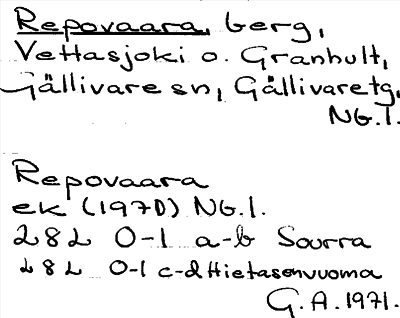 Repovaara, berg,
Vettasjoki o. Granhult,
Gällivare sn, Gällivare tg,
NG.l.
Repovaara
ek (1970) NG.l.
28L 0-1 a-b Saurra
28L 0-1 c-d Hietasenvuoma
G.A. 1971.